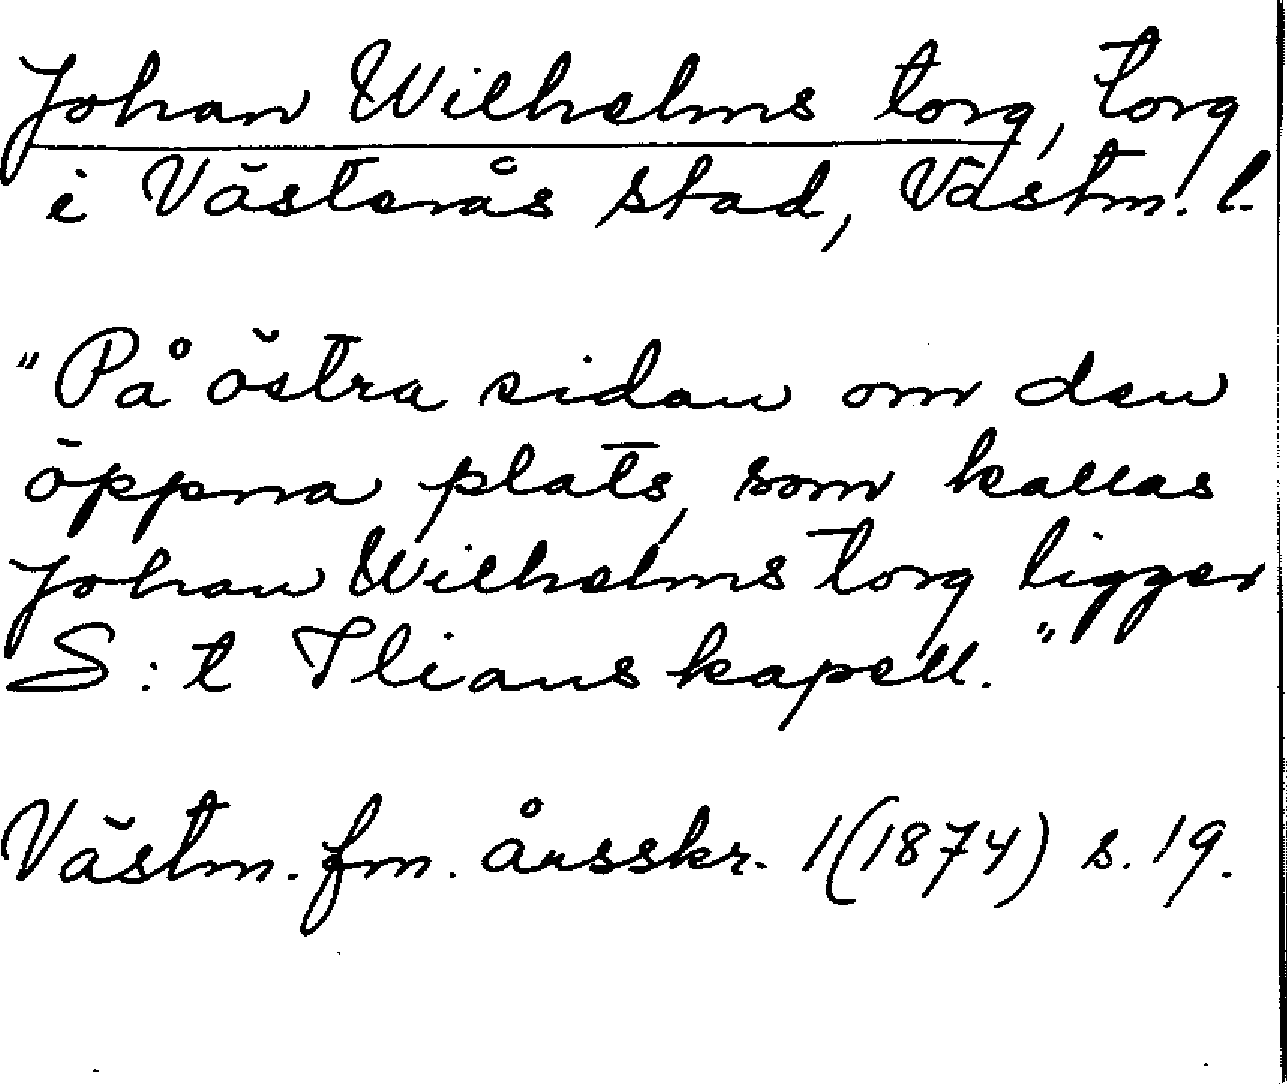 Johan Wilhelms torg, torg
i Västerås stad, Västm. l.
"På östra sidan om den
öppna plats, som kallas
Johan Wilhelms torg ligger
S:t Ilians kapell."
Västm. fm. årsskr. 1(1874) s. 19.